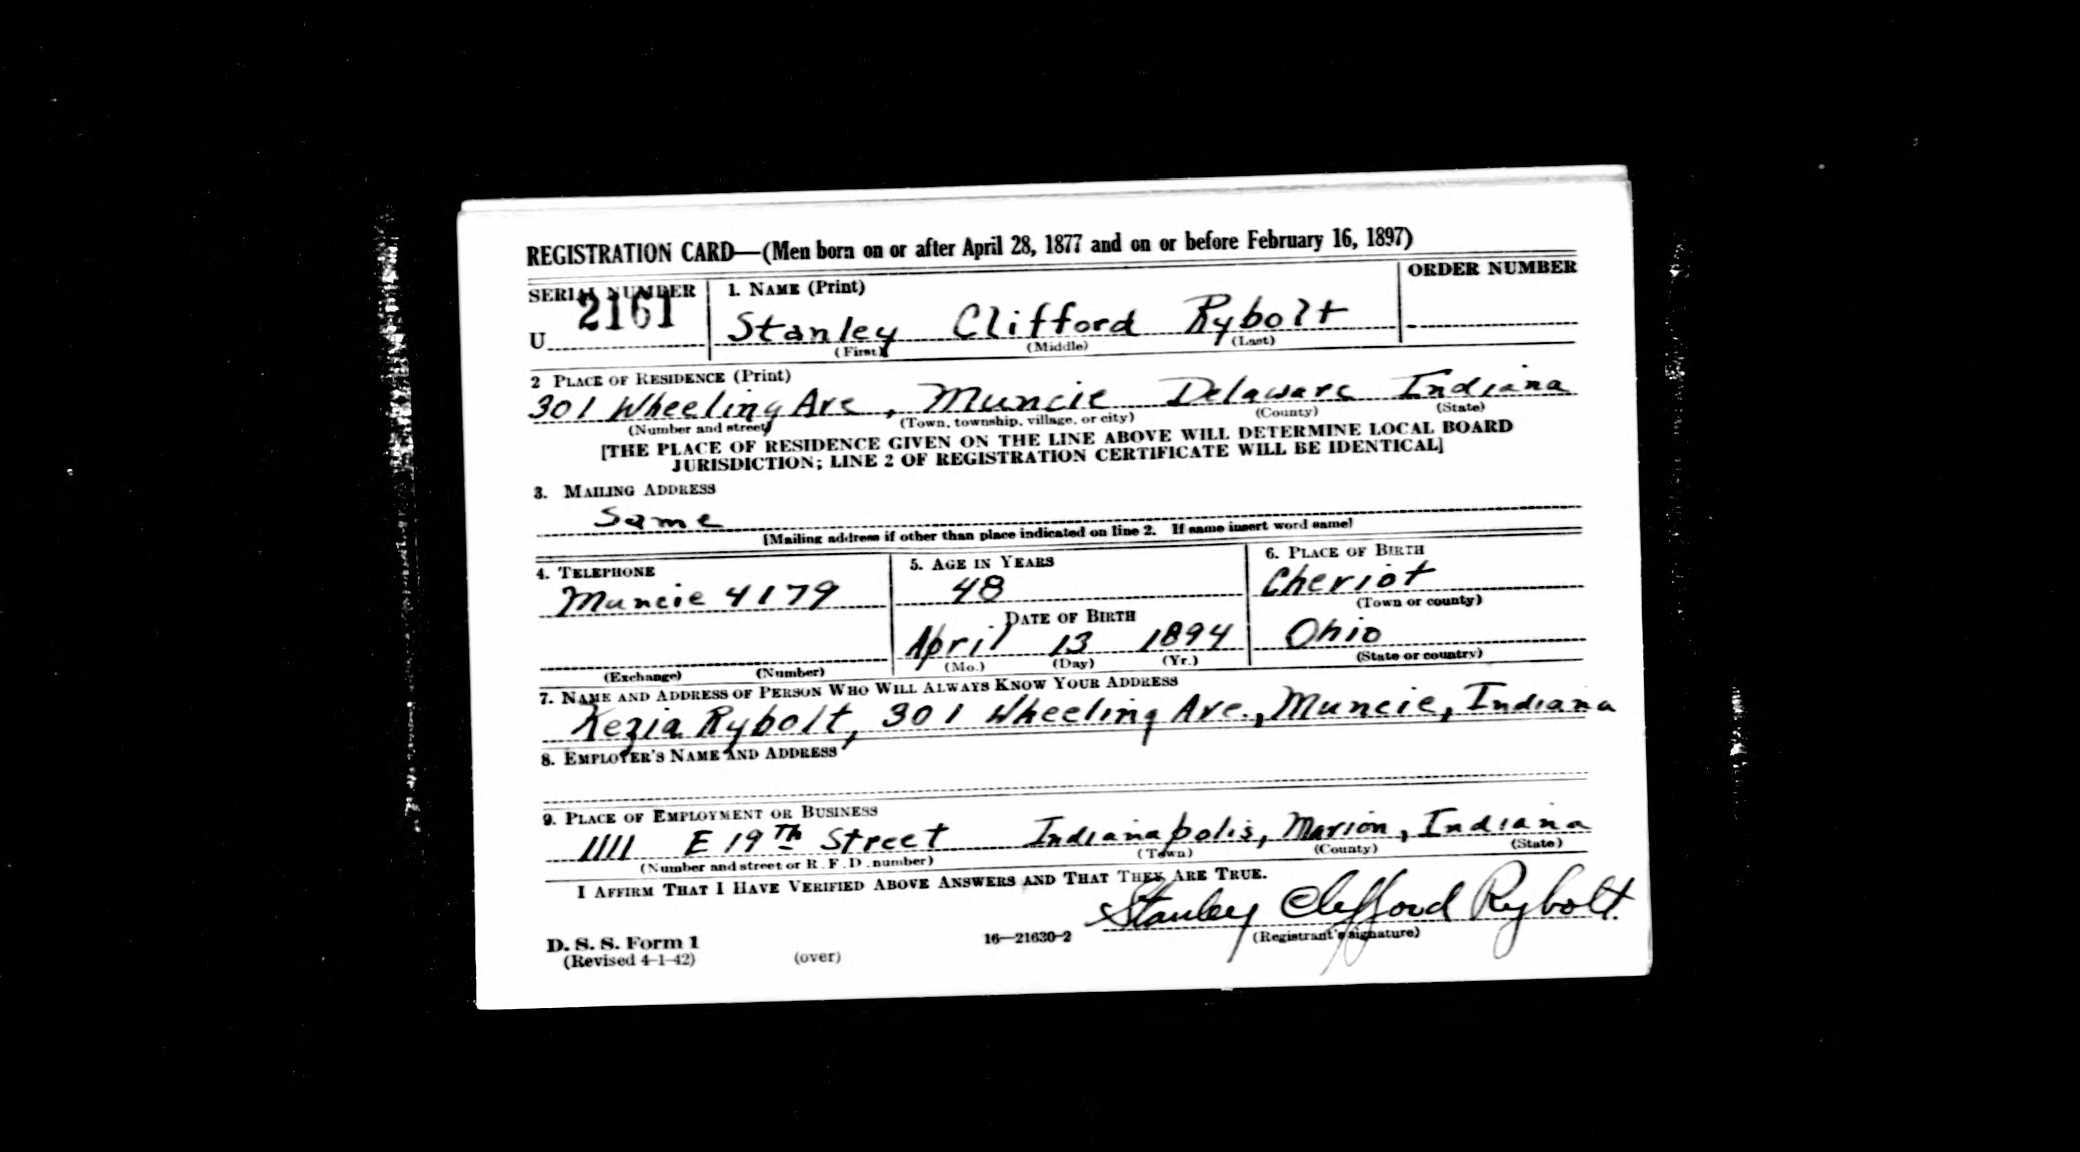 REGISTRATION CARD—(Men born on or after April 28, 1877 and on or before February 16, 1897)
SERIAL NUMBER 1. NAME (Print) ORDER NUMBER
U 2161 Stanley Clifford Rybolt
(First) (Middle) (Last)
2 PLACE OF RESIDENCE (Print)
301 Wheeling Ave, Muncie Delaware Indiana
(Number and street) (Town, township, village, or city) (County) (State)
[THE PLACE OF RESIDENCE GIVEN ON THE LINE ABOVE WILL DETERMINE LOCAL BOARD
JURISDICTION; LINE 2 OF REGISTRATION CERTIFICATE WILL BE IDENTICAL]
3. MAILING ADDRESS
Same
[Mailing address if other than place indicated on line 2. If same insert word same]
4. TELEPHONE 5. AGE IN YEARS 6. PLACE OF BIRTH
Muncie 4179 48 Cheriot
(Town or county)
DATE OF BIRTH
April 13 1894 Ohio
(Exchange) (Number) (Mo.) (Day) (Yr.) (State or country)
7. NAME AND ADDRESS OF PERSON WHO WILL ALWAYS KNOW YOUR ADDRESS
Kezia Rybolt, 301 Wheeling Ave., Muncie, Indiana
8. EMPLOYER'S NAME AND ADDRESS
9. PLACE OF EMPLOYMENT OR BUSINESS
1111 E 19th Street Indianapolis, Marion, Indiana
(Number and street or R. F. D. number) (Town) (County) (State)
I AFFIRM THAT I HAVE VERIFIED ABOVE ANSWERS AND THAT THEY ARE TRUE.
Stanley Clifford Rybolt.
D. S. S. Form 1 16—21630-2 (Registrant's signature)
(Revised 4-1-42) (over)